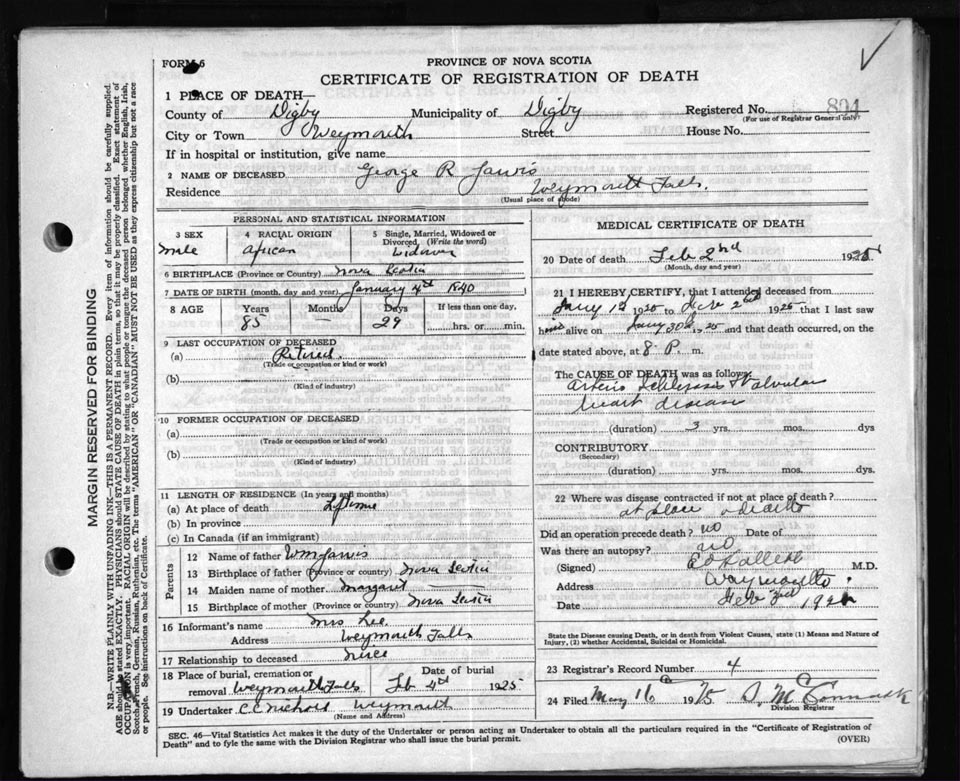 FORM 6
PROVINCE OF NOVA SCOTIA
CERTIFICATE OF REGISTRATION OF DEATH
1 PLACE OF DEATH—
County of Digby Municipality of Digby Registered No. 804
(For use of Registrar General only)
City or Town Weymouth Street House No.
If in hospital or institution, give name
2 NAME OF DECEASED George R Jarvis
Residence Weymouth Falls.
(Usual place of abode)
PERSONAL AND STATISTICAL INFORMATION
3 SEX 4 RACIAL ORIGIN 5 Single, Married, Widowed or Divorced, (Write the word)
male African Widower
6 BIRTHPLACE (Province or Country) Nova Scotia
7 DATE OF BIRTH (month, day and year) January 4th 1840
8 AGE Years Months Days If less than one day,
85 — 29 hrs. or min.
9 LAST OCCUPATION OF DECEASED
(a) Retired.
(Trade or occupation or kind or work)
(b)
(Kind of industry)
10 FORMER OCCUPATION OF DECEASED
(a)
(Trade or occupation or kind of work)
(b)
(Kind of industry)
11 LENGTH OF RESIDENCE (In years and months)
(a) At place of death Lifetime
(b) In province
(c) In Canada (if an immigrant)
Parents
12 Name of father Wm Jarvis
13 Birthplace of father (Province or country) Nova Scotia
14 Maiden name of mother Margaret
15 Birthplace of mother (Province or country) Nova Scotia
16 Informant's name Mrs Lee
Address Weymouth Falls
17 Relationship to deceased Niece
18 Place of burial, cremation or removal Weymouth Falls Date of burial Feb 4th 1925
19 Undertaker C C Nichols Weymouth
(Name and Address)
MEDICAL CERTIFICATE OF DEATH
20 Date of death Feb 2nd 1925
(Month, day and year)
21 I HEREBY CERTIFY, that I attended deceased from
1925 to 2nd 1925 that I last saw
alive on 30th, 25 and that death occurred, on the
date stated above, at 8 P. m.
The CAUSE OF DEATH was as follows:
Arterio Sclerosis + Valvular
heart disease
(duration) 3 yrs. mos. dys
CONTRIBUTORY
(Secondary)
(duration) yrs. mos. dys.
22 Where was disease contracted if not at place of death?
at place of death
Did an operation precede death? no Date of
Was there an autopsy? no
(Signed) M.D.
Address Weymouth.
Date Feb 192
State the Disease causing Death, or in death from Violent Causes, state (1) Means and Nature of
Injury, (2) whether Accidental, Suicidal or Homicidal.
23 Registrar's Record Number 4
24 Filed May 16 1925
Division Registrar
SEC. 46—Vital Statistics Act makes it the duty of the Undertaker or person acting as Undertaker to obtain all the particulars required in the "Certificate of Registration of
Death" and to fyle the same with the Division Registrar who shall issue the burial permit.
(OVER)
MARGIN RESERVED FOR BINDING
N.B—WRITE PLAINLY WITH UNFADING INK—THIS IS A PERMANENT RECORD. Every item of information should be carefully supplied.
AGE should be stated EXACTLY. PHYSICIANS should STATE CAUSE OF DEATH in plain terms, so that it may be properly classified. Exact statement of
OCCUPATION is very important. RACIAL ORIGIN will be described by stating to what people or tongue the deceased person belonged whether English, Irish,
Scotch, French, German, Russian, Ruthenian, etc. The terms "AMERICAN" OR "CANADIAN" MUST NOT BE USED as they express citizenship but not a race
or people. See instructions on back of Certificate.